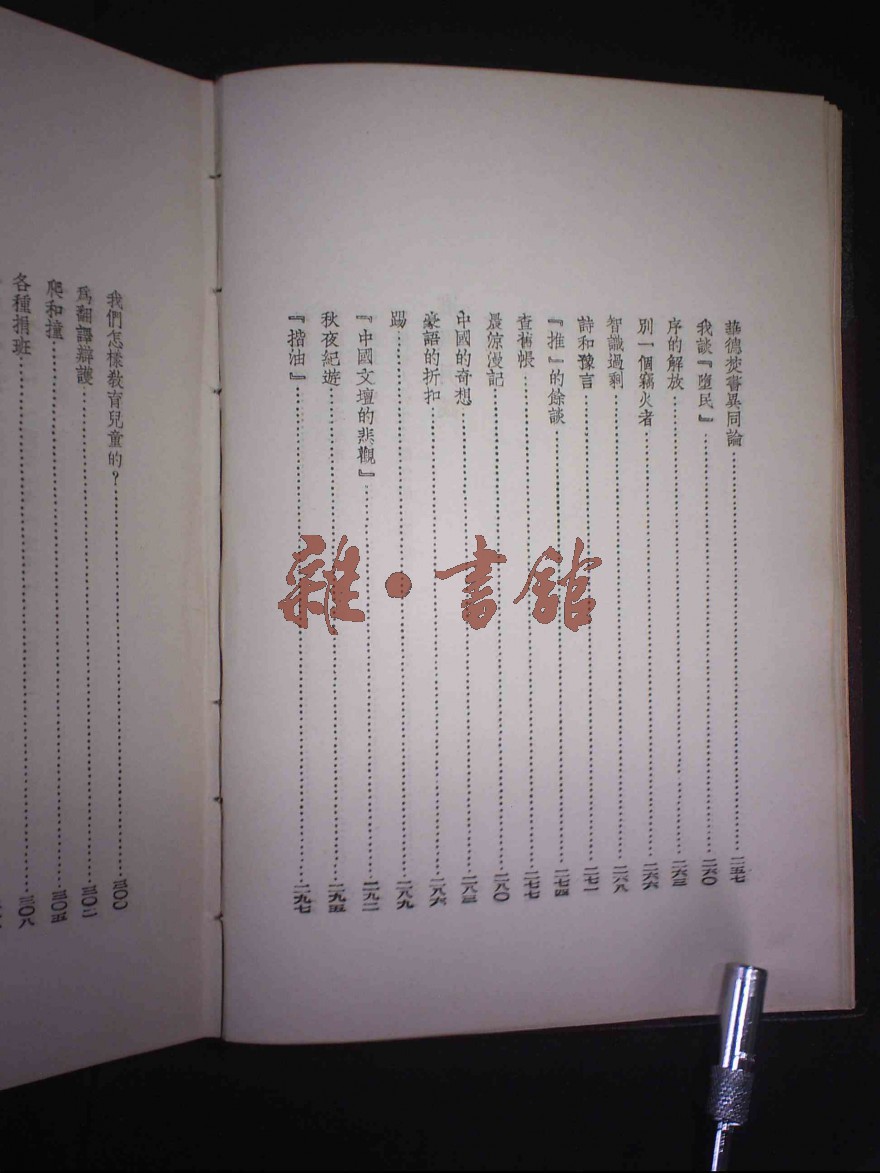 華德焚書異同論…………二五七
我談『墮民』…………二六〇
序的解放…………二六三
別一個竊火者…………二六六
智識過剩…………二六八
詩和豫言…………二七一
『推』的餘談…………二七四
查舊帳…………二七七
晨涼漫記…………二八〇
中國的奇想…………二八三
豪語的折扣…………二八六
踢…………二八九
『中國文壇的悲觀』…………二九二
秋夜紀遊…………二九五
『揩油』…………二九七
我們怎樣教育兒童的？…………三〇〇
爲翻譯辯護…………三〇二
爬和撞…………三〇五
各種捐班…………三〇八
雜·書館